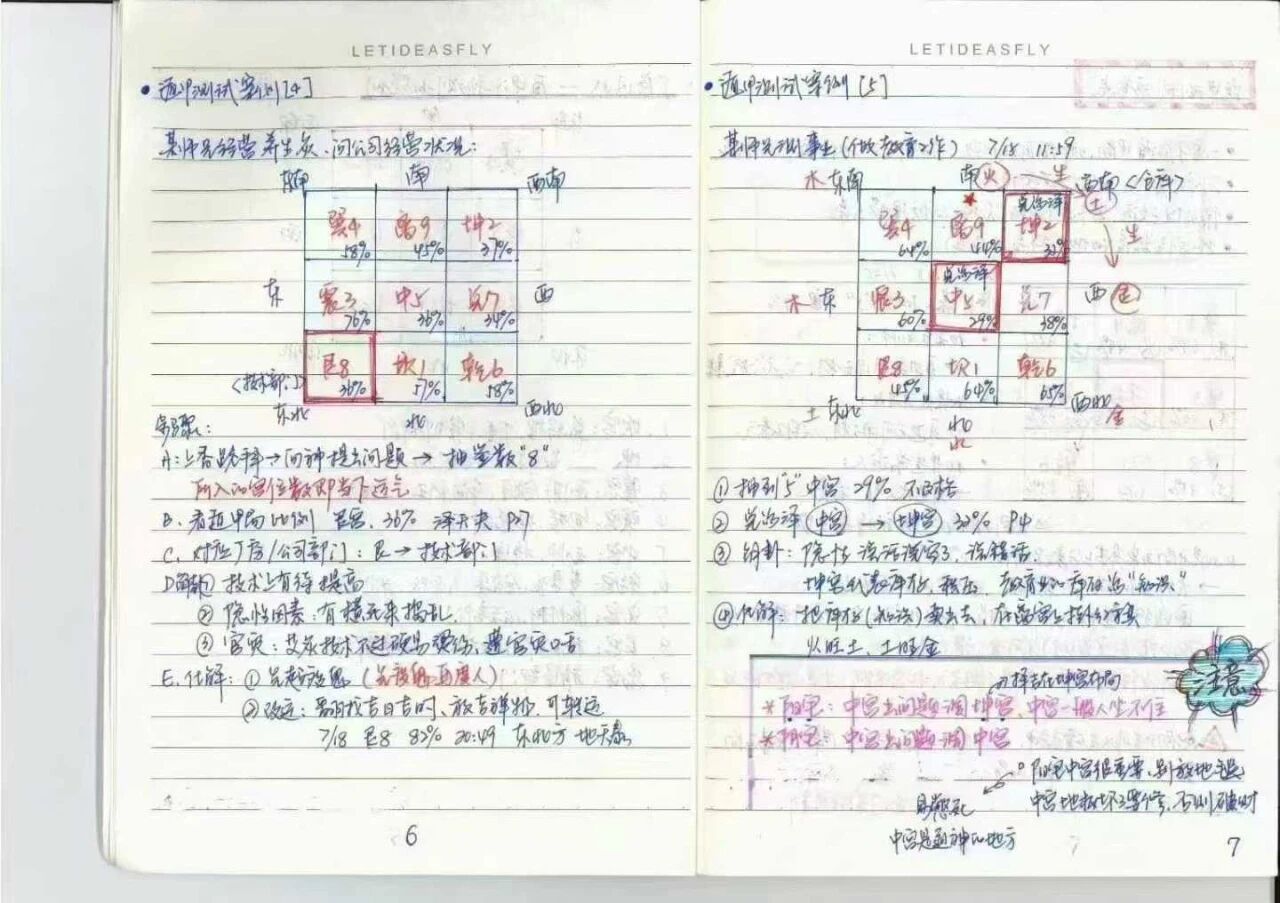 LETIDEASFLY
• 遁甲测试案例[4]
某师兄经营养生灸,问公司经营状况:
东南 南 西南
巽4 离9 坤2
58% 45% 37%
东 震3 中5 兑7 西
76% 36% 34%
艮8 坎1 乾6
36% 57% 58%
<技术部门>
东北 北 西北
步骤:
A:上香 → 问神提出问题 → 抽签数"8"
所入的宫位数即当下运气
B. 看遁甲局比例 艮宫. 36% 泽天夬 P27
C. 对应厂房/公司部门:艮→技术部门
D 解卦① 技术上有待提高
② 隐性因素:有 来捣乱.
③ 官灾:艾灸技术不过硬易烫伤,遭官灾口舌
E. 化解:①先超 (先度鬼,再度人)
② 改运:艮门找吉日吉时、放吉祥物,可转运
7/18 艮8 82% 20:49 东北方 地天泰
6
LETIDEASFLY
• 遁甲测试案例[5]
某师兄测事业(做教育工作) 7/18 11:59
木 东南 南 火 生 西南 <仓库>
兑为泽 土
巽4 离9 坤2
64% 44% 33%
生
兑为泽
木 东 震3 中5 兑7 西 金
60% 29% 38%
艮8 坎1 乾6
45% 64% 65%
土 东北 北 西北
水 金
① 抽到"5" 中宫 29% 不及格
② 兑为泽 中宫 → 坤宫 33% P4
③ 解卦:隐性 说话 说错话
坤宫代表库存,积压. 教育业的库存为"知识"
④ 化解:把库存(知识)卖出去,在离宫上挂
火旺土、土旺金
注意
择吉在坤宫布局
* 阳宅:中宫出问题调坤宫,中宫一般人坐不住
* 阴宅:中宫出问题调中宫
。阳宅中宫很重要,别放地毯
中宫地板坏了要修,否则破财
易憋死
中宫是通神的地方
7